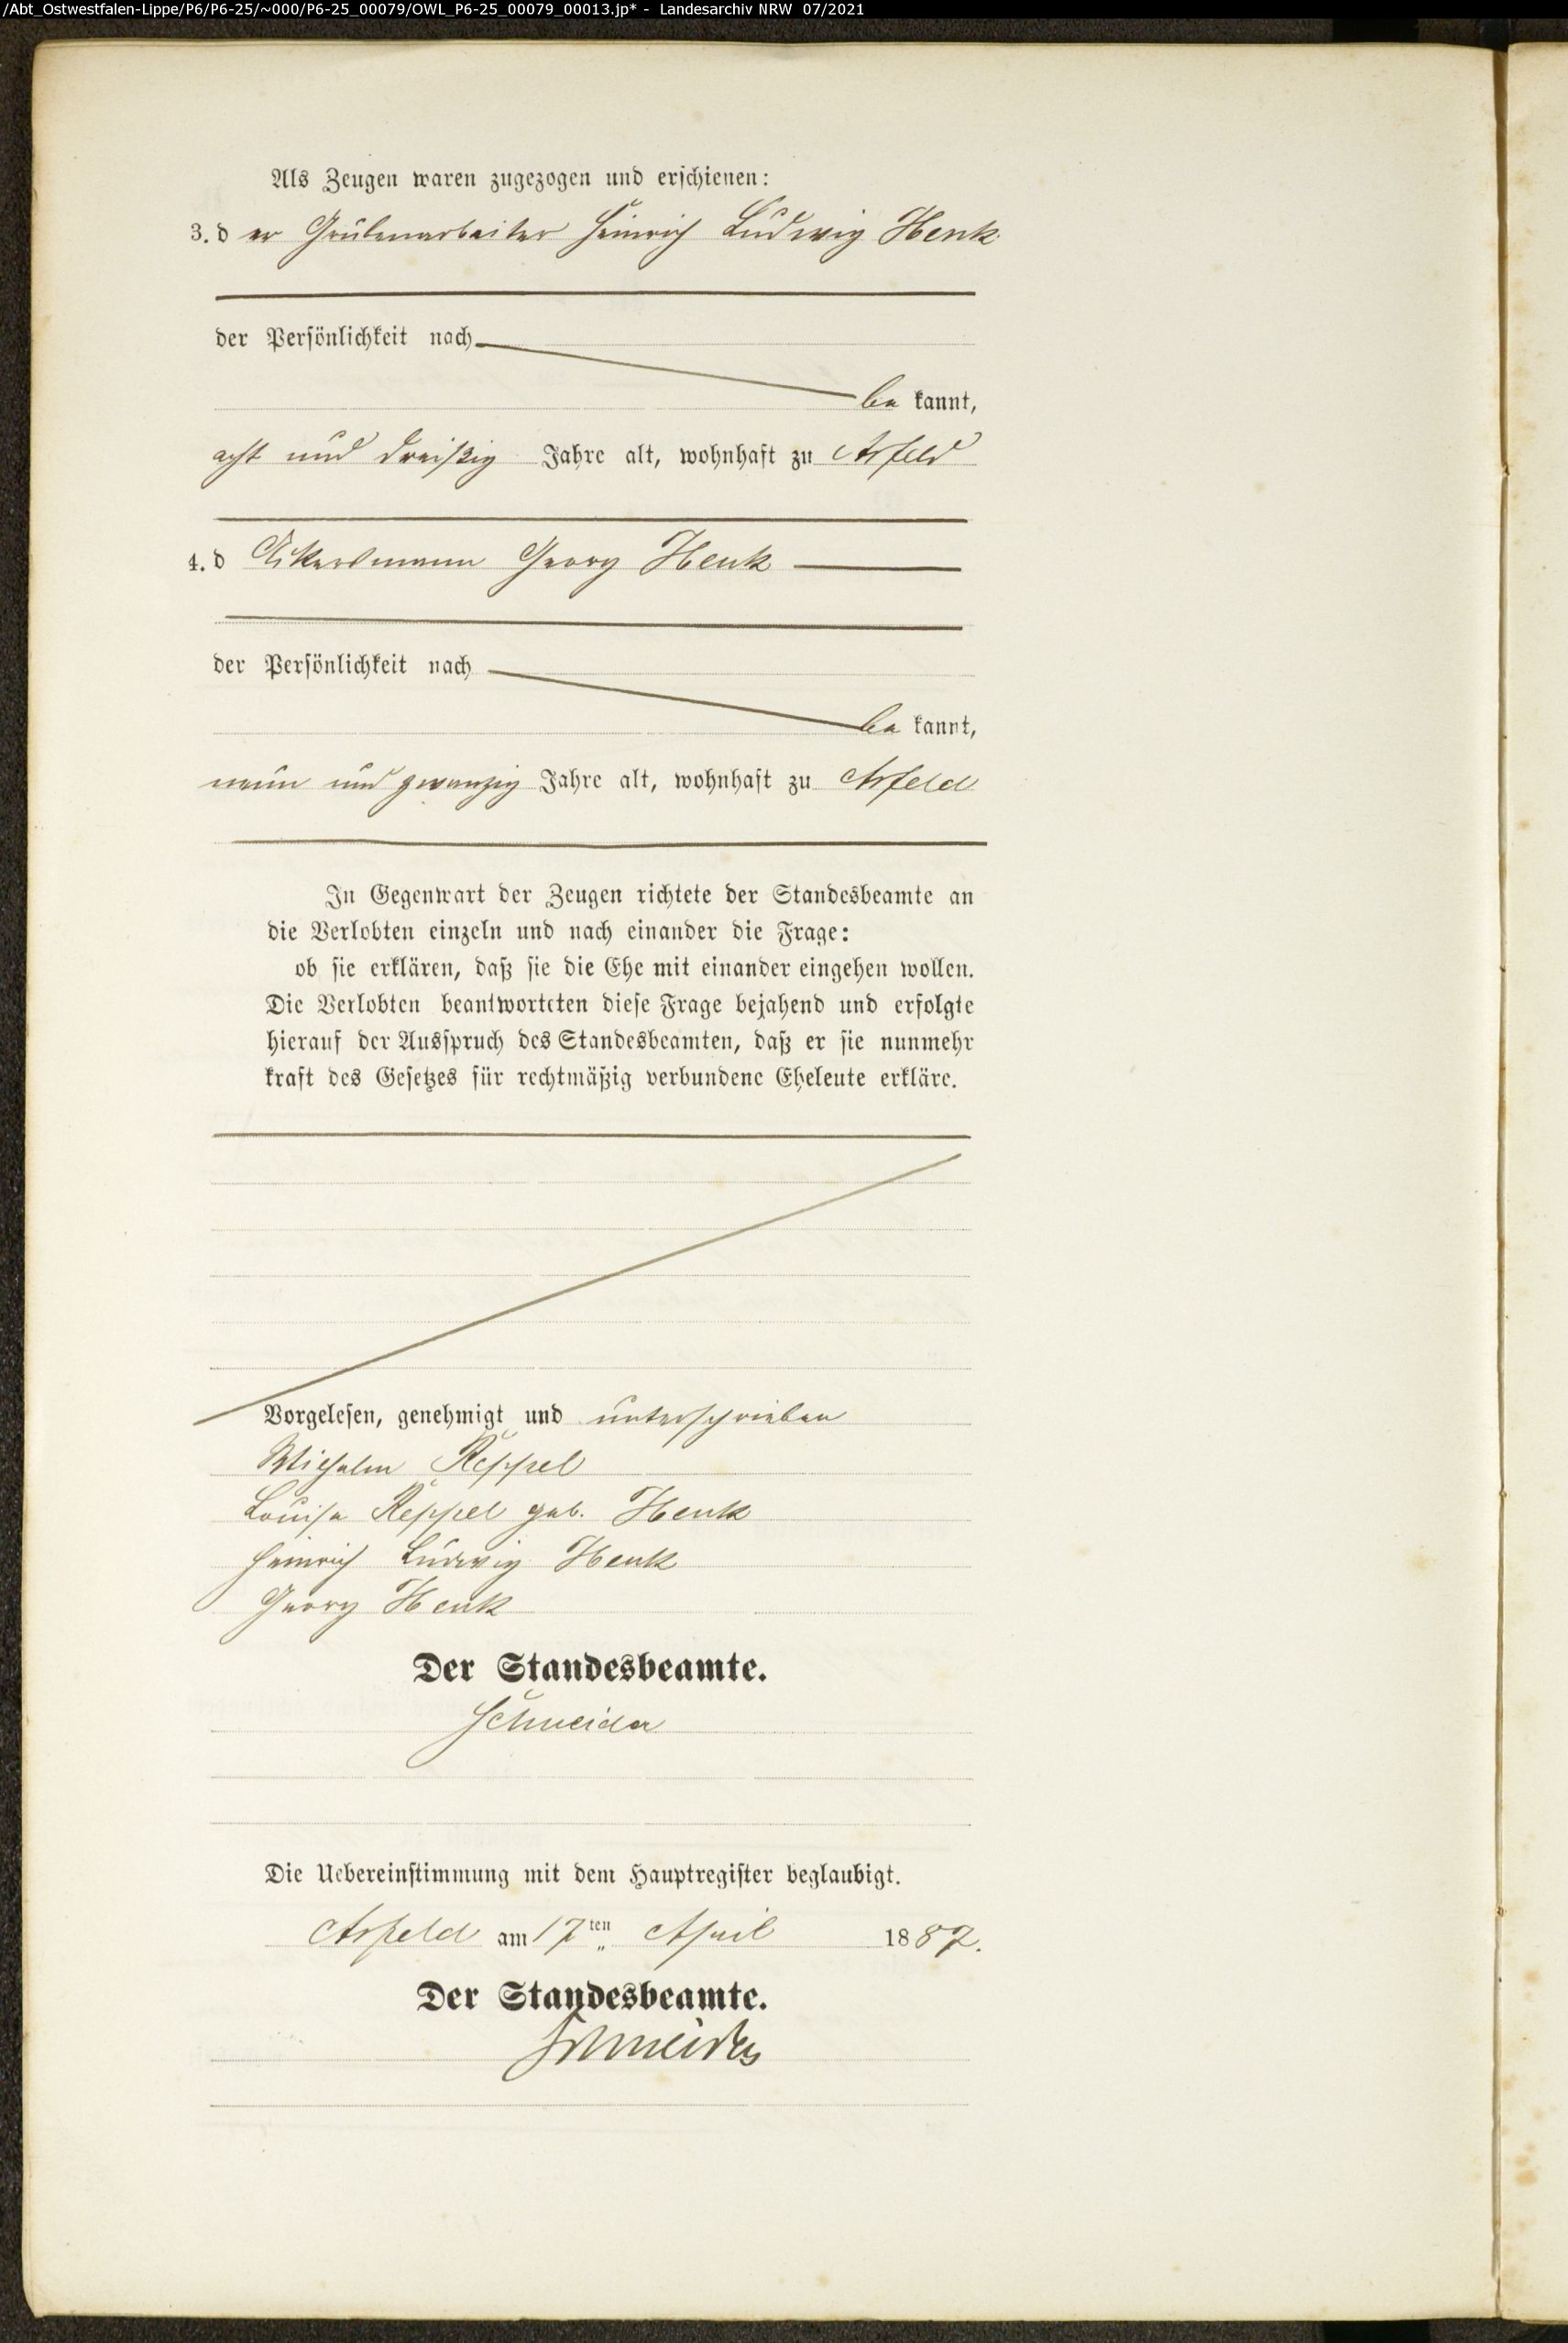 /Abt_Ostwestfalen-Lippe/P6/P6-25/~000/P6-25_00079/OWL_P6-25_00079_00013.jp* - Landesarchiv NRW 07/2021
Als Zeugen waren zugezogen und erschienen:
3. d er Grubenarbeiter Heinrich Ludwig Henk
der Persönlichkeit nach
be kannt,
acht und dreißig Jahre alt, wohnhaft zu Arfeld
4. d Ackersmann Georg Henk
der Persönlichkeit nach
be kannt,
neun und zwanzig Jahre alt, wohnhaft zu Arfeld
In Gegenwart der Zeugen richtete der Standesbeamte an
die Verlobten einzeln und nach einander die Frage:
ob sie erklären, daß sie die Ehe mit einander eingehen wollen.
Die Verlobten beantworteten diese Frage bejahend und erfolgte
hierauf der Ausspruch des Standesbeamten, daß er sie nunmehr
kraft des Gesetzes für rechtmäßig verbundene Eheleute erkläre.
Vorgelesen, genehmigt und unterschrieben
Wilhelm Reppel
Louise Reppel geb. Henk
Heinrich Ludwig Henk
Georg Henk
Der Standesbeamte.
Schneider
Die Uebereinstimmung mit dem Hauptregister beglaubigt.
Arfeld am 17ten April 1887.
Der Standesbeamte.
Schneider